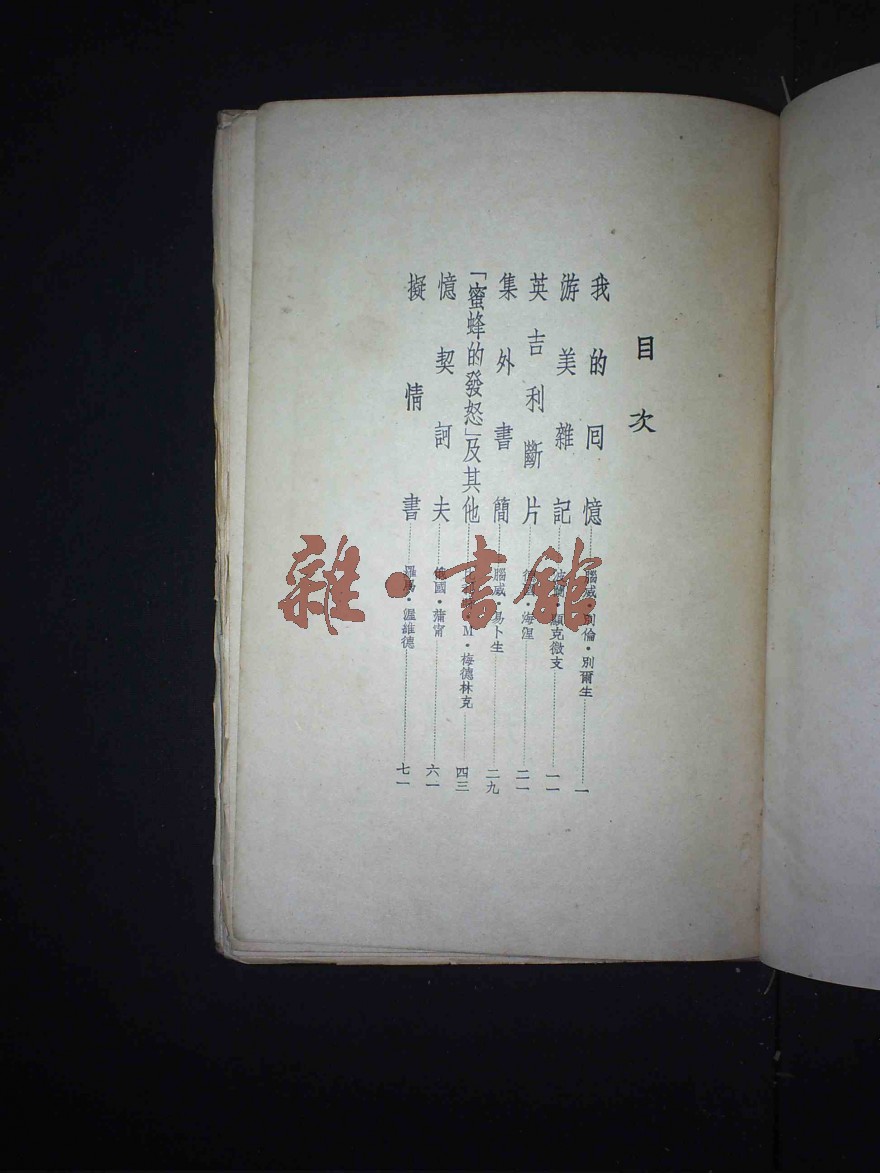 目次
我的囘憶 腦威・別倫・別爾生 一
游美雜記 波蘭・顯克微支 一一
英吉利斷片 德國・海涅 二一
集外書簡 腦威・易卜生 二九
「蜜蜂的發怒」及其他 M・梅德林克 四三
憶契訶夫 俄國・蒲甯 六一
擬情書 羅馬・渥維德 七一
雜・書館